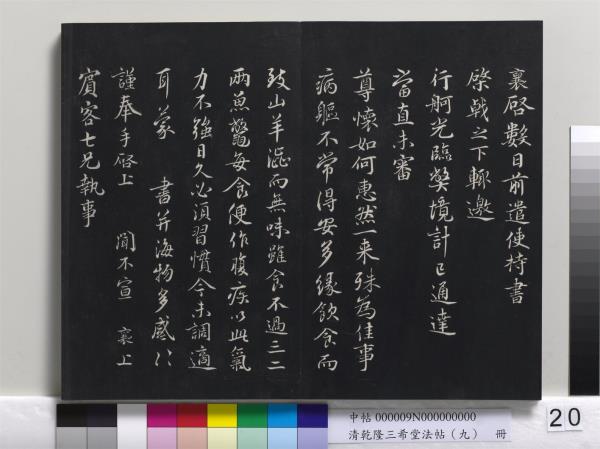 襄啓數日前遣使持書
棨戟之下輒邀
行舸光臨獘境計已通達
當直未審
尊懷如何惠然一來殊為佳事
病軀不常得安多緣飲食而
致山羊涩而無味雖食不過三二
兩魚鼈每食便作腹疾以此氣
力不強日久必須習慣今未調適
耳蒙 書并海物多感〻
謹奉手啓上 聞不宣 襄上
賓客七兄執事
中帖 000009N000000000
清乾隆三希堂法帖（九） 冊
20